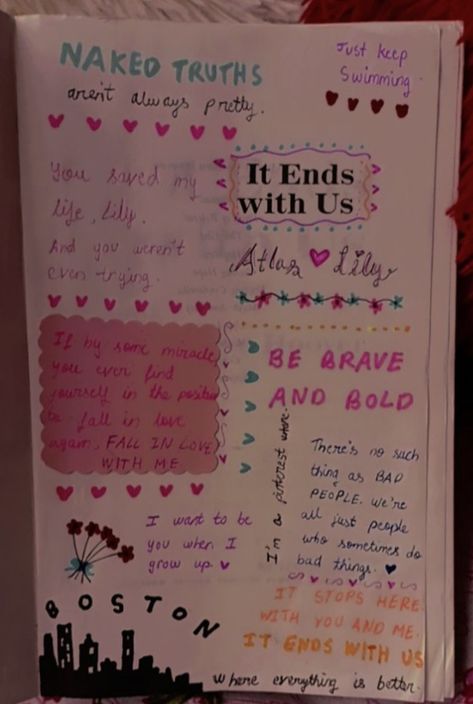 NAKED TRUTHS
aren't always pretty.
Just keep
Swimming.
You saved my
life, Lily.
And you weren't
even trying.
It Ends
with Us
Atlas Lily
If by some miracle
you ever find
yourself in the position
to fall in love
again, FALL IN LOVE
WITH ME
BE BRAVE
AND BOLD
I'm a pinterest whore.
There's no such
thing as BAD
PEOPLE. We're
all just people
who sometimes do
bad things.
I want to be
you when I
grow up
IT STOPS HERE.
WITH YOU AND ME.
IT ENDS WITH US
BOSTON
where everything is better.